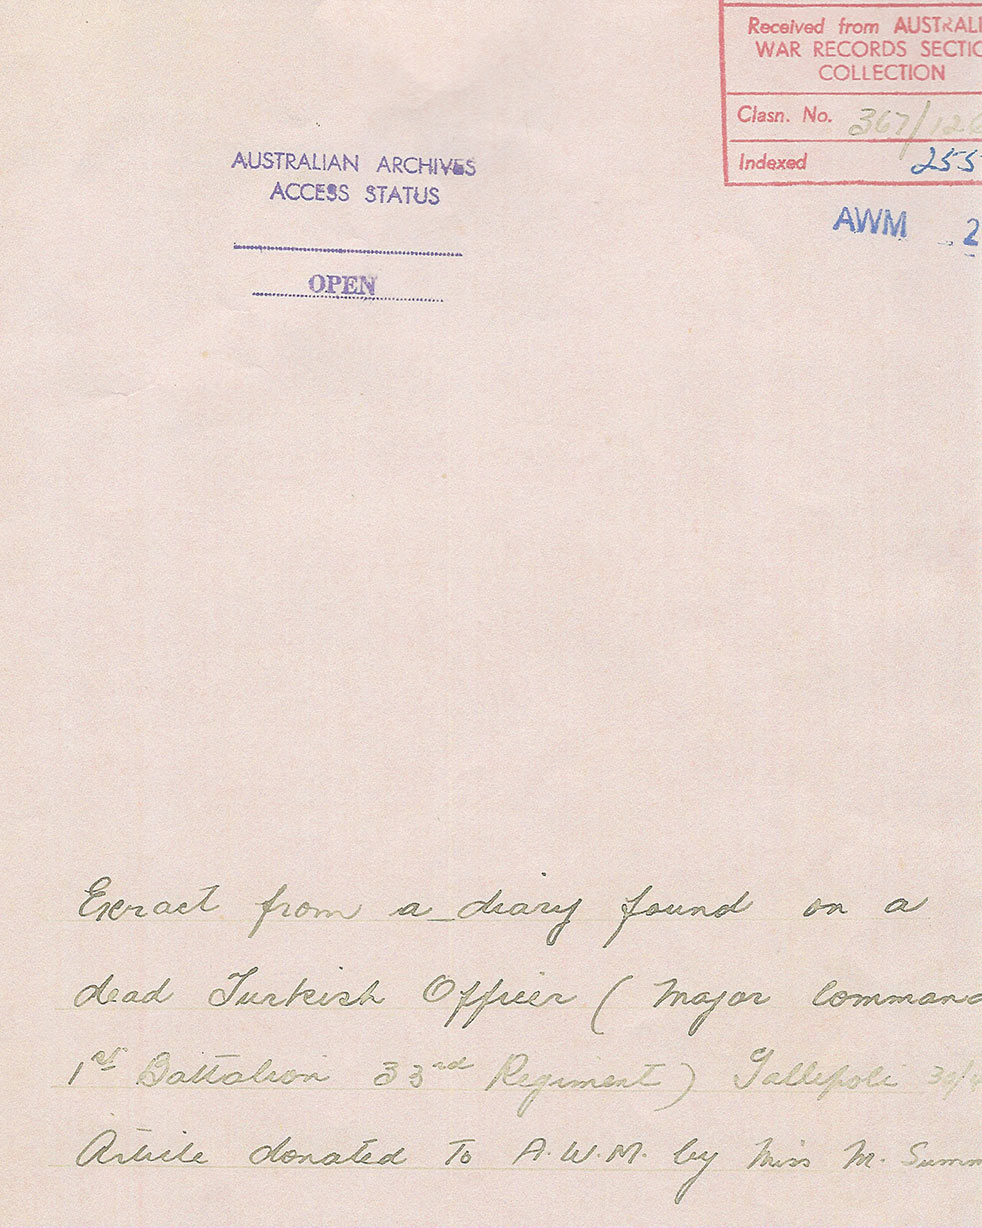 Received from AUSTRALI
WAR RECORDS SECTIO
COLLECTION
Clasn. No. 367/12
Indexed 255
AUSTRALIAN ARCHIVES
ACCESS STATUS
OPEN
AWM 2
Exract from a diary found on a
dead Turkish Officer ( Major Command
1st Battalion 33rd Regiment) Gallipoli 30/4
Article donated to A.W.M. by Miss M. Summ